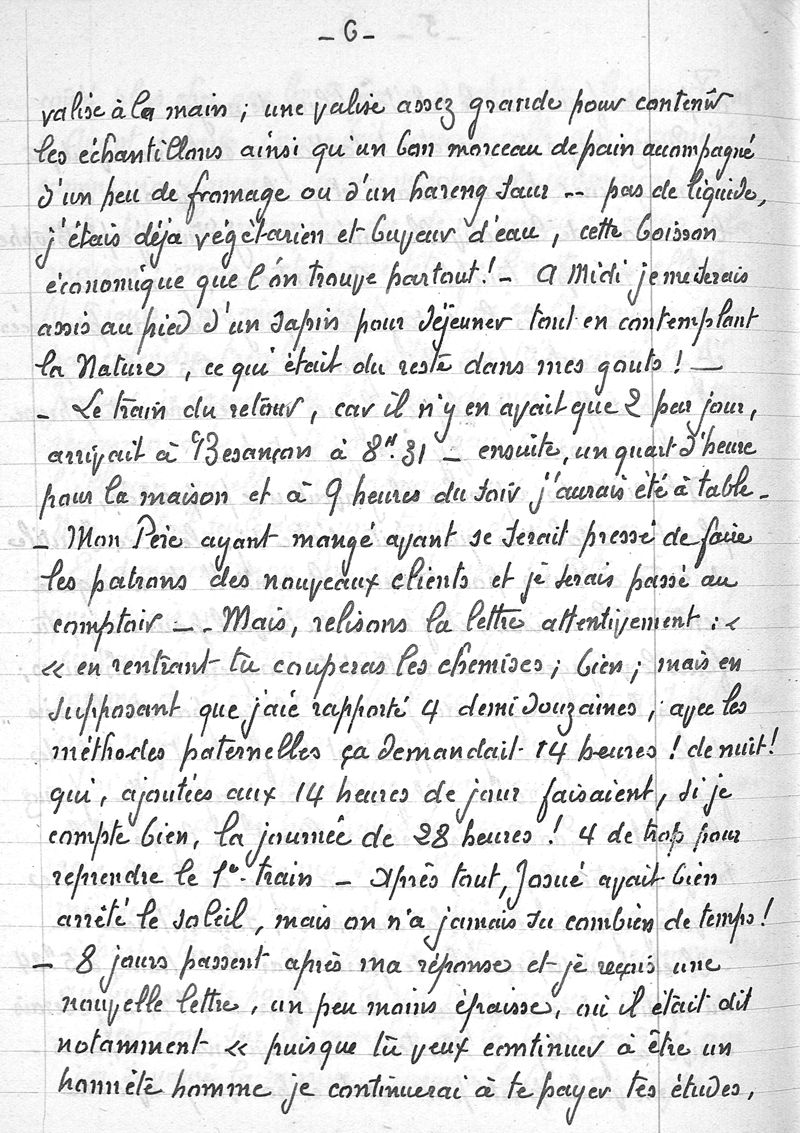 - 6 -
valise à la main ; une valise assez grande pour contenir
les échantillons ainsi qu'un bon morceau de pain accompagné
d'un peu de fromage ou d'un hareng saur -- pas de liquide,
j'étais déja végètarien et buveur d'eau , cette boisson
économique que l'on trouve partout ! - A Midi je me serais
assis au pied d'un sapin pour déjeuner tout en contemplant
la Nature , ce qui était du reste dans mes gouts ! —
- Le train du retour , car il n'y en avait que 2 par jour,
arrivait à Besançon à 8H. 31 - ensuite, un quart d'heure
pour la maison et à 9 heures du soir j'aurais été à table -
- Mon Père ayant mangé avant se serait pressé de faire
les patrons des nouveaux clients et je serais passé au
comptoir - - Mais, relisons la lettre attentivement : «
« en rentrant tu couperas les chemises ; bien ; mais en
supposant que j'aie rapporté 4 demi douzaines , avec les
méthodes paternelles ça demandait 14 heures ! de nuit !
qui , ajoutées aux 14 heures de jour faisaient, si je
compte bien, la journée de 28 heures ! 4 de trop pour
reprendre le 1e. train - Après tout, Josué avait bien
arrêté le soleil , mais on n'a jamais su combien de temps !
- 8 jours passent après ma réponse et je reçois une
nouvelle lettre , un peu moins épaisse, où il était dit
notamment « puisque tu veux continuer à être un
honnête homme je continuerai à te payer tes études,